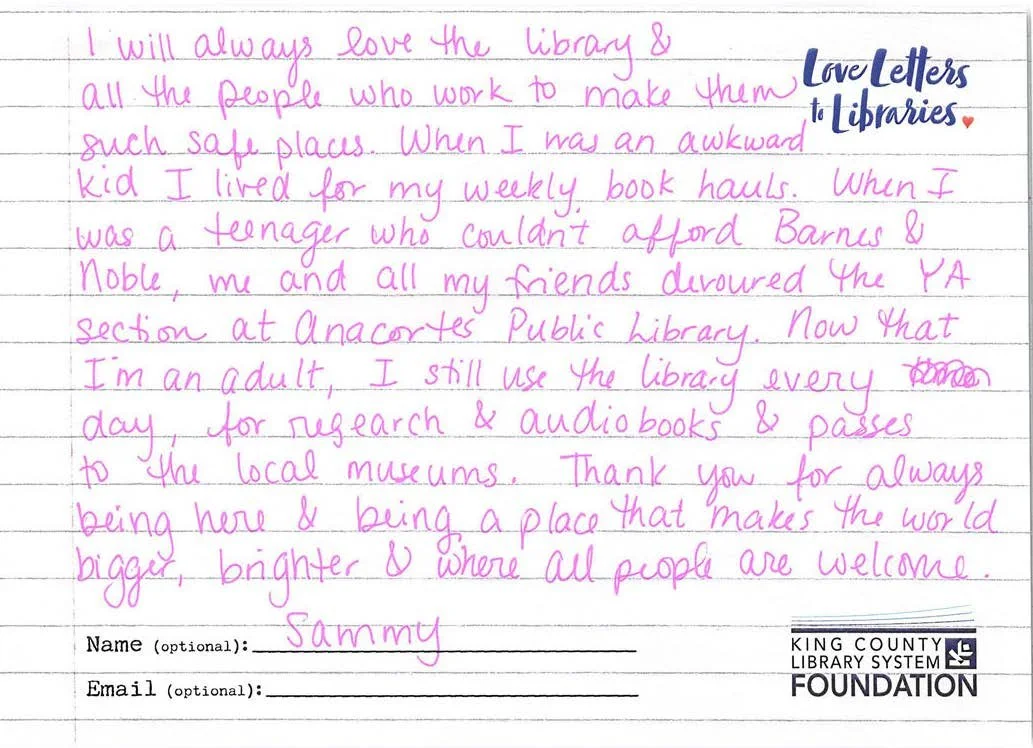 I will always love the library &
all the people who work to make them
such safe places. When I was an awkward
kid I lived for my weekly book hauls. When I
was a teenager who couldn't afford Barnes &
Noble, me and all my friends devoured the YA
section at Anacortes Public Library. Now that
I'm an adult, I still use the library every
day, for research & audiobooks & passes
to the local museums. Thank you for always
being here & being a place that makes the world
bigger, brighter & where all people are welcome.
Love Letters
to Libraries.
Name (optional): Sammy
Email (optional):
KING COUNTY
LIBRARY SYSTEM
FOUNDATION